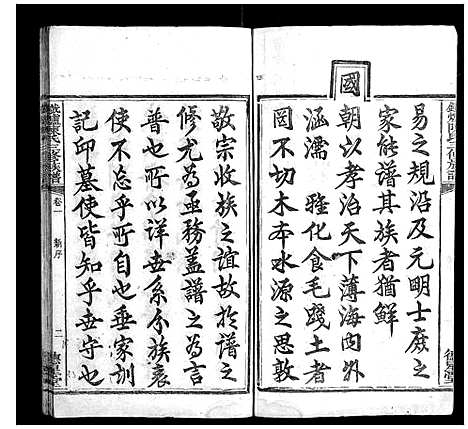 易之規沿及元明士庶之
家能譜其族者猶鮮
國
朝以孝治天下薄海內外
涵濡 雅化食毛踐土者
罔不切木本水源之思敦
敬宗收族之誼故於譜之
修尤為亟務蓋譜之為言
普也所以詳世系分族衷
使不忘乎所自也垂家訓
記卬墓使皆知乎世守也
卷一
新序
二